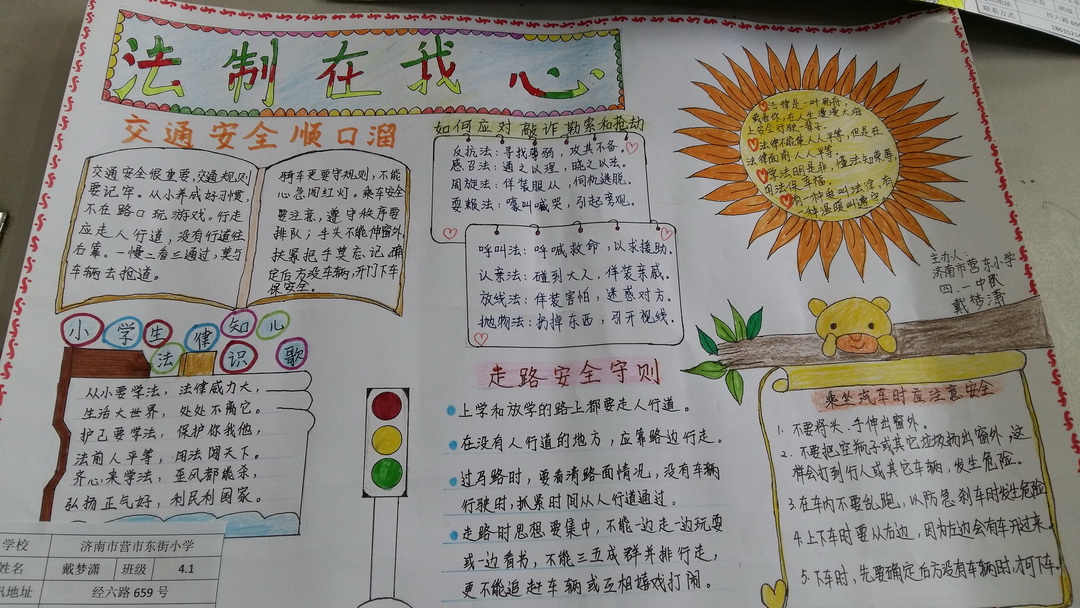 法制在我心
交通安全顺口溜
交通安全很重要,交通规则
要记牢。从小养成好习惯,
不在路口玩游戏。行走
应走人行道,没有行道往
右靠。一慢二看三通过,莫与
车辆去抢道。
骑车更要守规则,不能
心急闯红灯。乘车安全
要注意,遵守秩序要
排队;手头不能伸窗外,
扶紧把手莫忘记,确
定后方没车辆,开门下车
保安全。
如何应对敲诈勒索和抢劫
反抗法:寻找薄弱,攻其不备。
感召法:通之以理,晓之以法。
周旋法:佯装服从,伺机逃脱。
耍赖法:嚎叫喊哭,引起旁观。
呼叫法:呼喊救命,以求援助。
认亲法:碰到大人,佯装亲戚。
放线法:佯装害怕,迷惑对方。
抛物法:扔掉东西,引开视线。
法律是一叶扁舟,
载着你,在人生漫漫大海
上安全行驶一辈子。
法律不能使人人平等,但是在
法律面前人人平等。
学法明是非,懂法知荣辱,
用法保幸福。
有一种爱叫法律,有
一种温暖叫遵守。
主办人:
济南市营东小学
四.一中队
戴梦潇
小学生法律知识儿歌
从小要学法,法律威力大,
生活大世界,处处不离它。
护己要学法,保护你我他,
法前人平等,用法闯天下。
齐心来学法,歪风都能杀,
弘扬正气好,利民利国家。
走路安全守则
上学和放学的路上都要走人行道。
在没有人行道的地方,应靠路边行走。
过马路时,要看清路面情况,没有车辆
行驶时,抓紧时间从人行道通过。
走路时思想要集中,不能一边走一边玩耍
或一边看书,不能三五成群并排行走,
更不能追赶车辆或互相嬉戏打闹。
乘坐汽车时应注意安全
1. 不要将头、手伸出窗外。
2. 不要把空瓶子或其它垃圾扔出窗外,这
样会打到行人或其它车辆,发生危险。
3. 在车内不要乱跑,以防急刹车时发生危险
4. 上下车时要从右边,因为左边会有车开过来。
5. 下车时,先要确定后方没有车辆时,才可下车。
学校 济南市营市东街小学
姓名 戴梦潇 班级 4.1
讯地址 经六路 659 号
联系方式